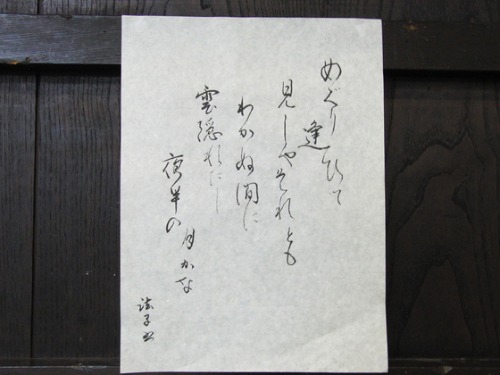 めぐり逢ひて
見しやそれとも
わかぬ間に
雲隠れにし
夜半の
月かな